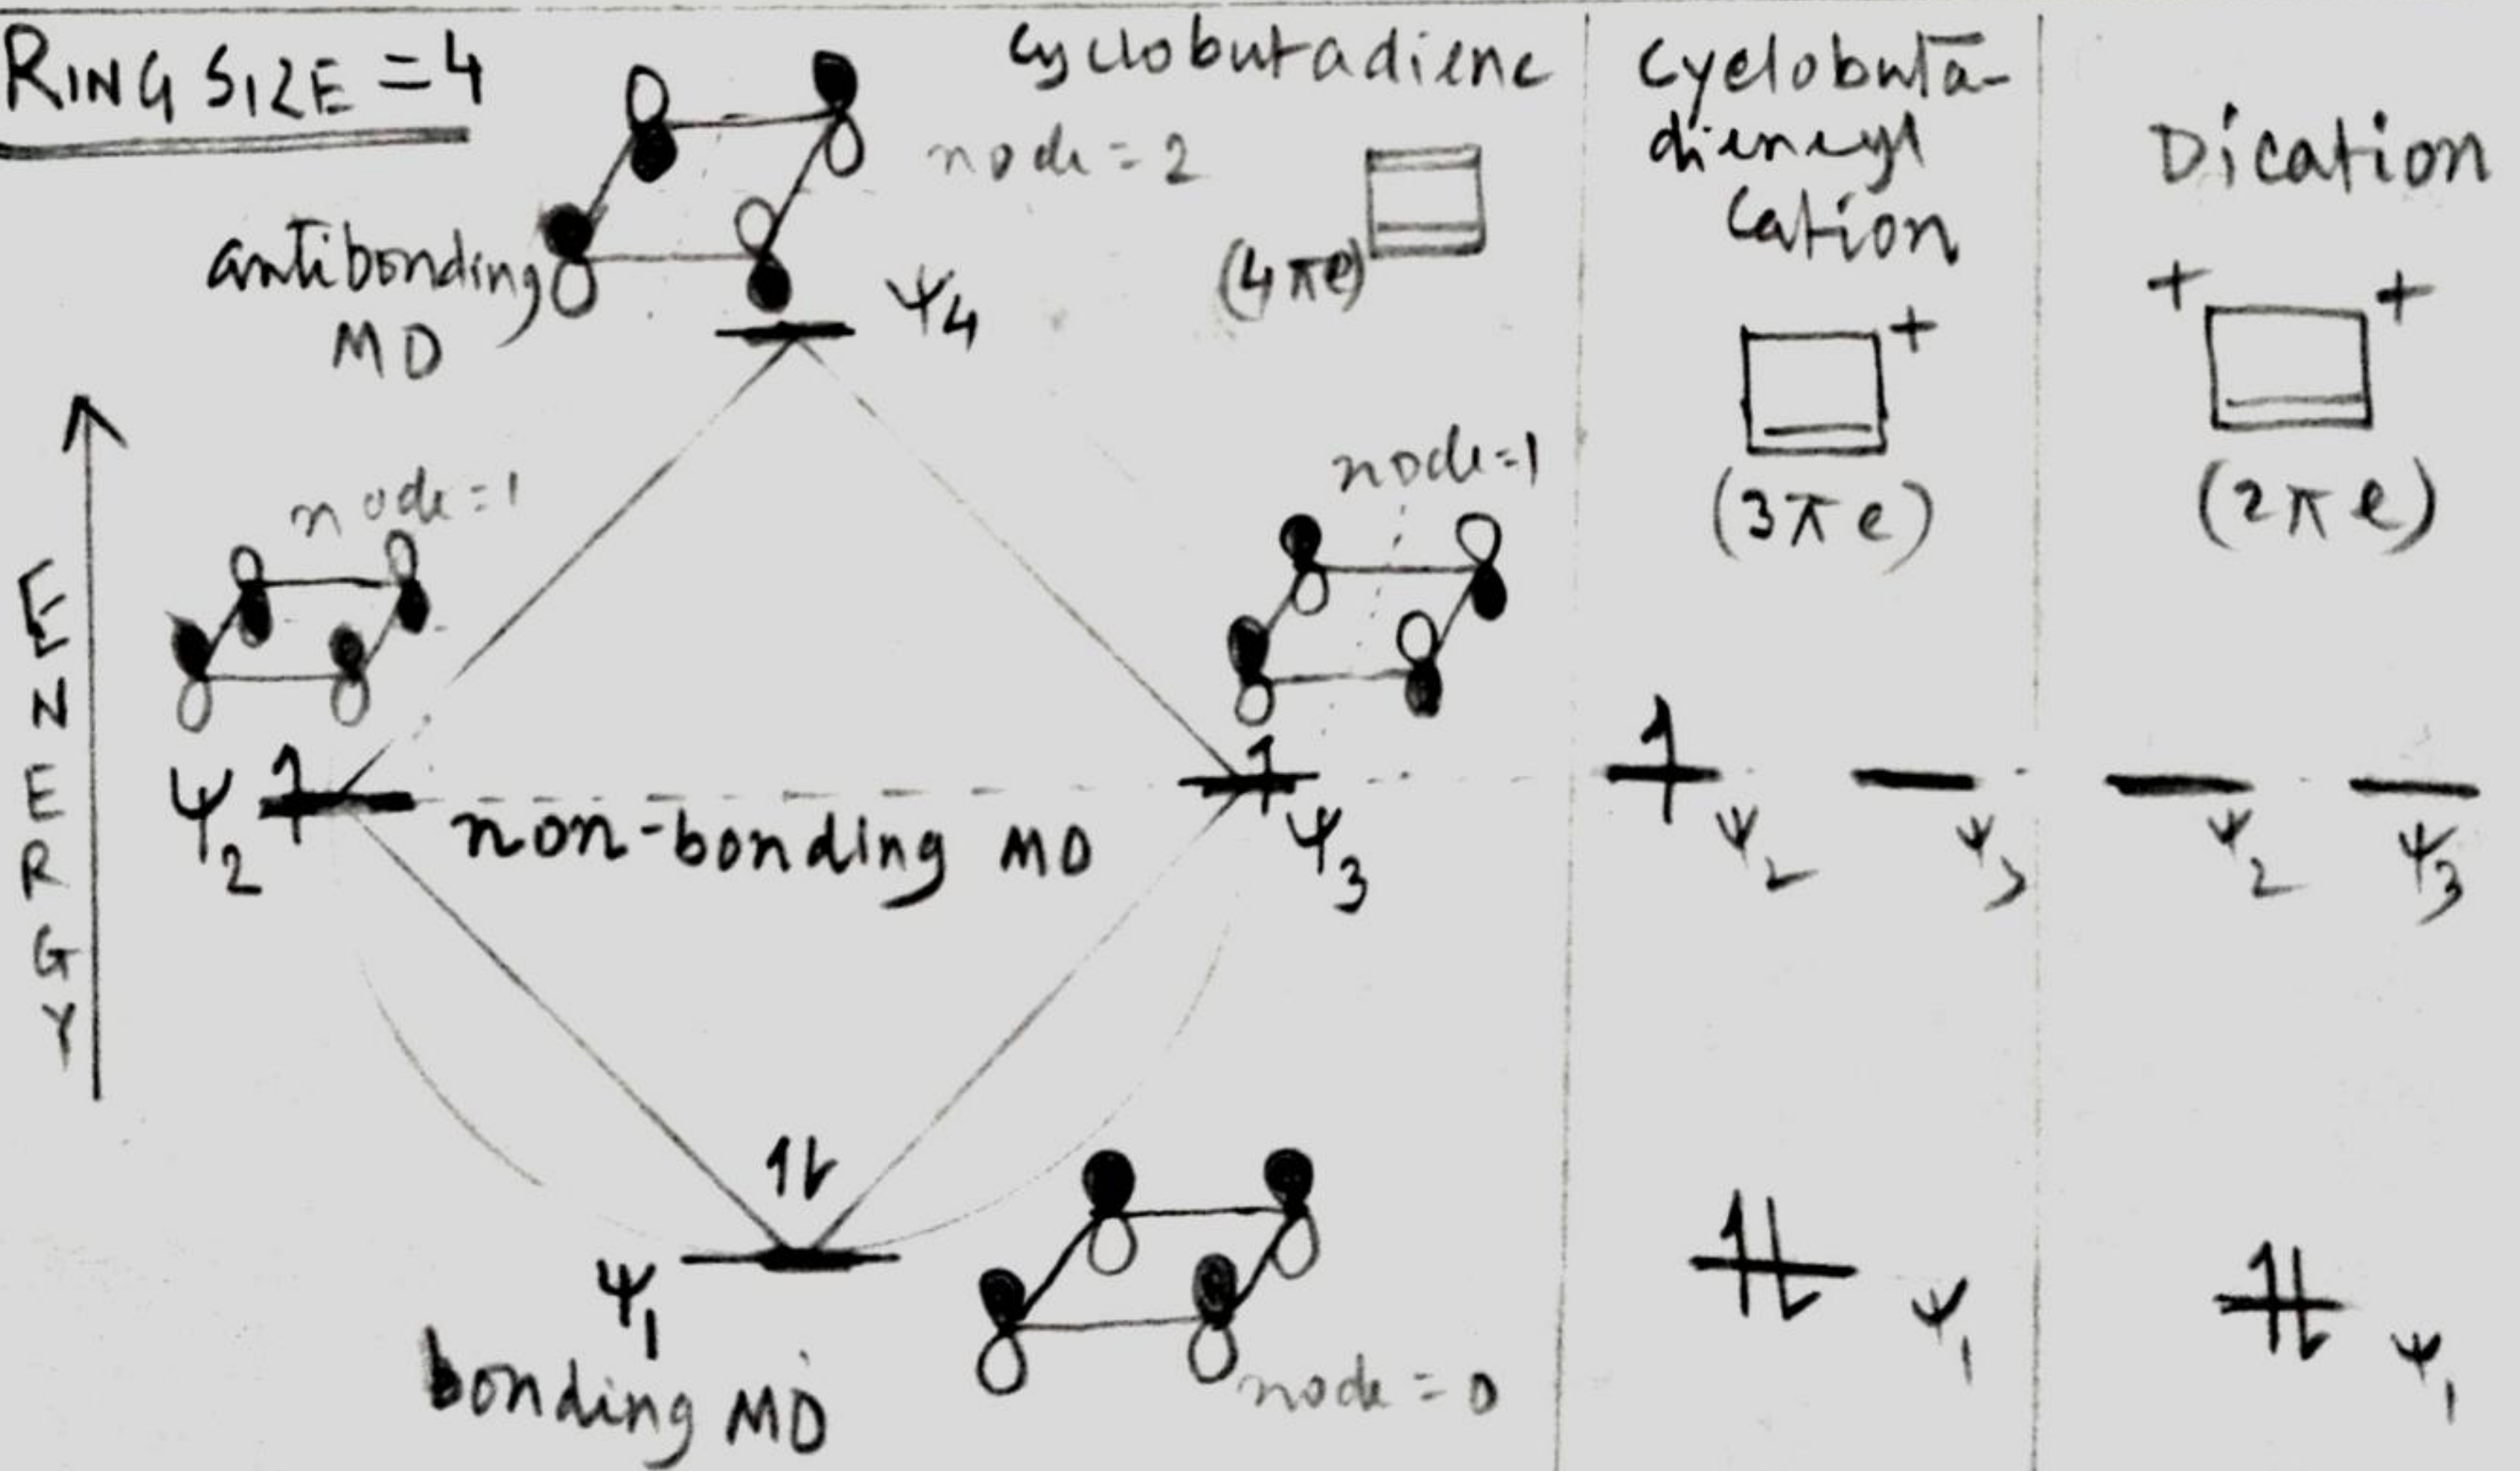 RING SIZE = 4
cyclobutadiene
node = 2
(4πe)
antibonding
MO
ψ4
ENERGY
node=1
node=1
ψ2
non-bonding MO
ψ3
ψ1
bonding MO
node = 0
Cyclobuta-
dieneyl
Cation
+
(3πe)
ψ2
ψ3
ψ1
Dication
+ +
(2πe)
ψ2
ψ3
ψ1